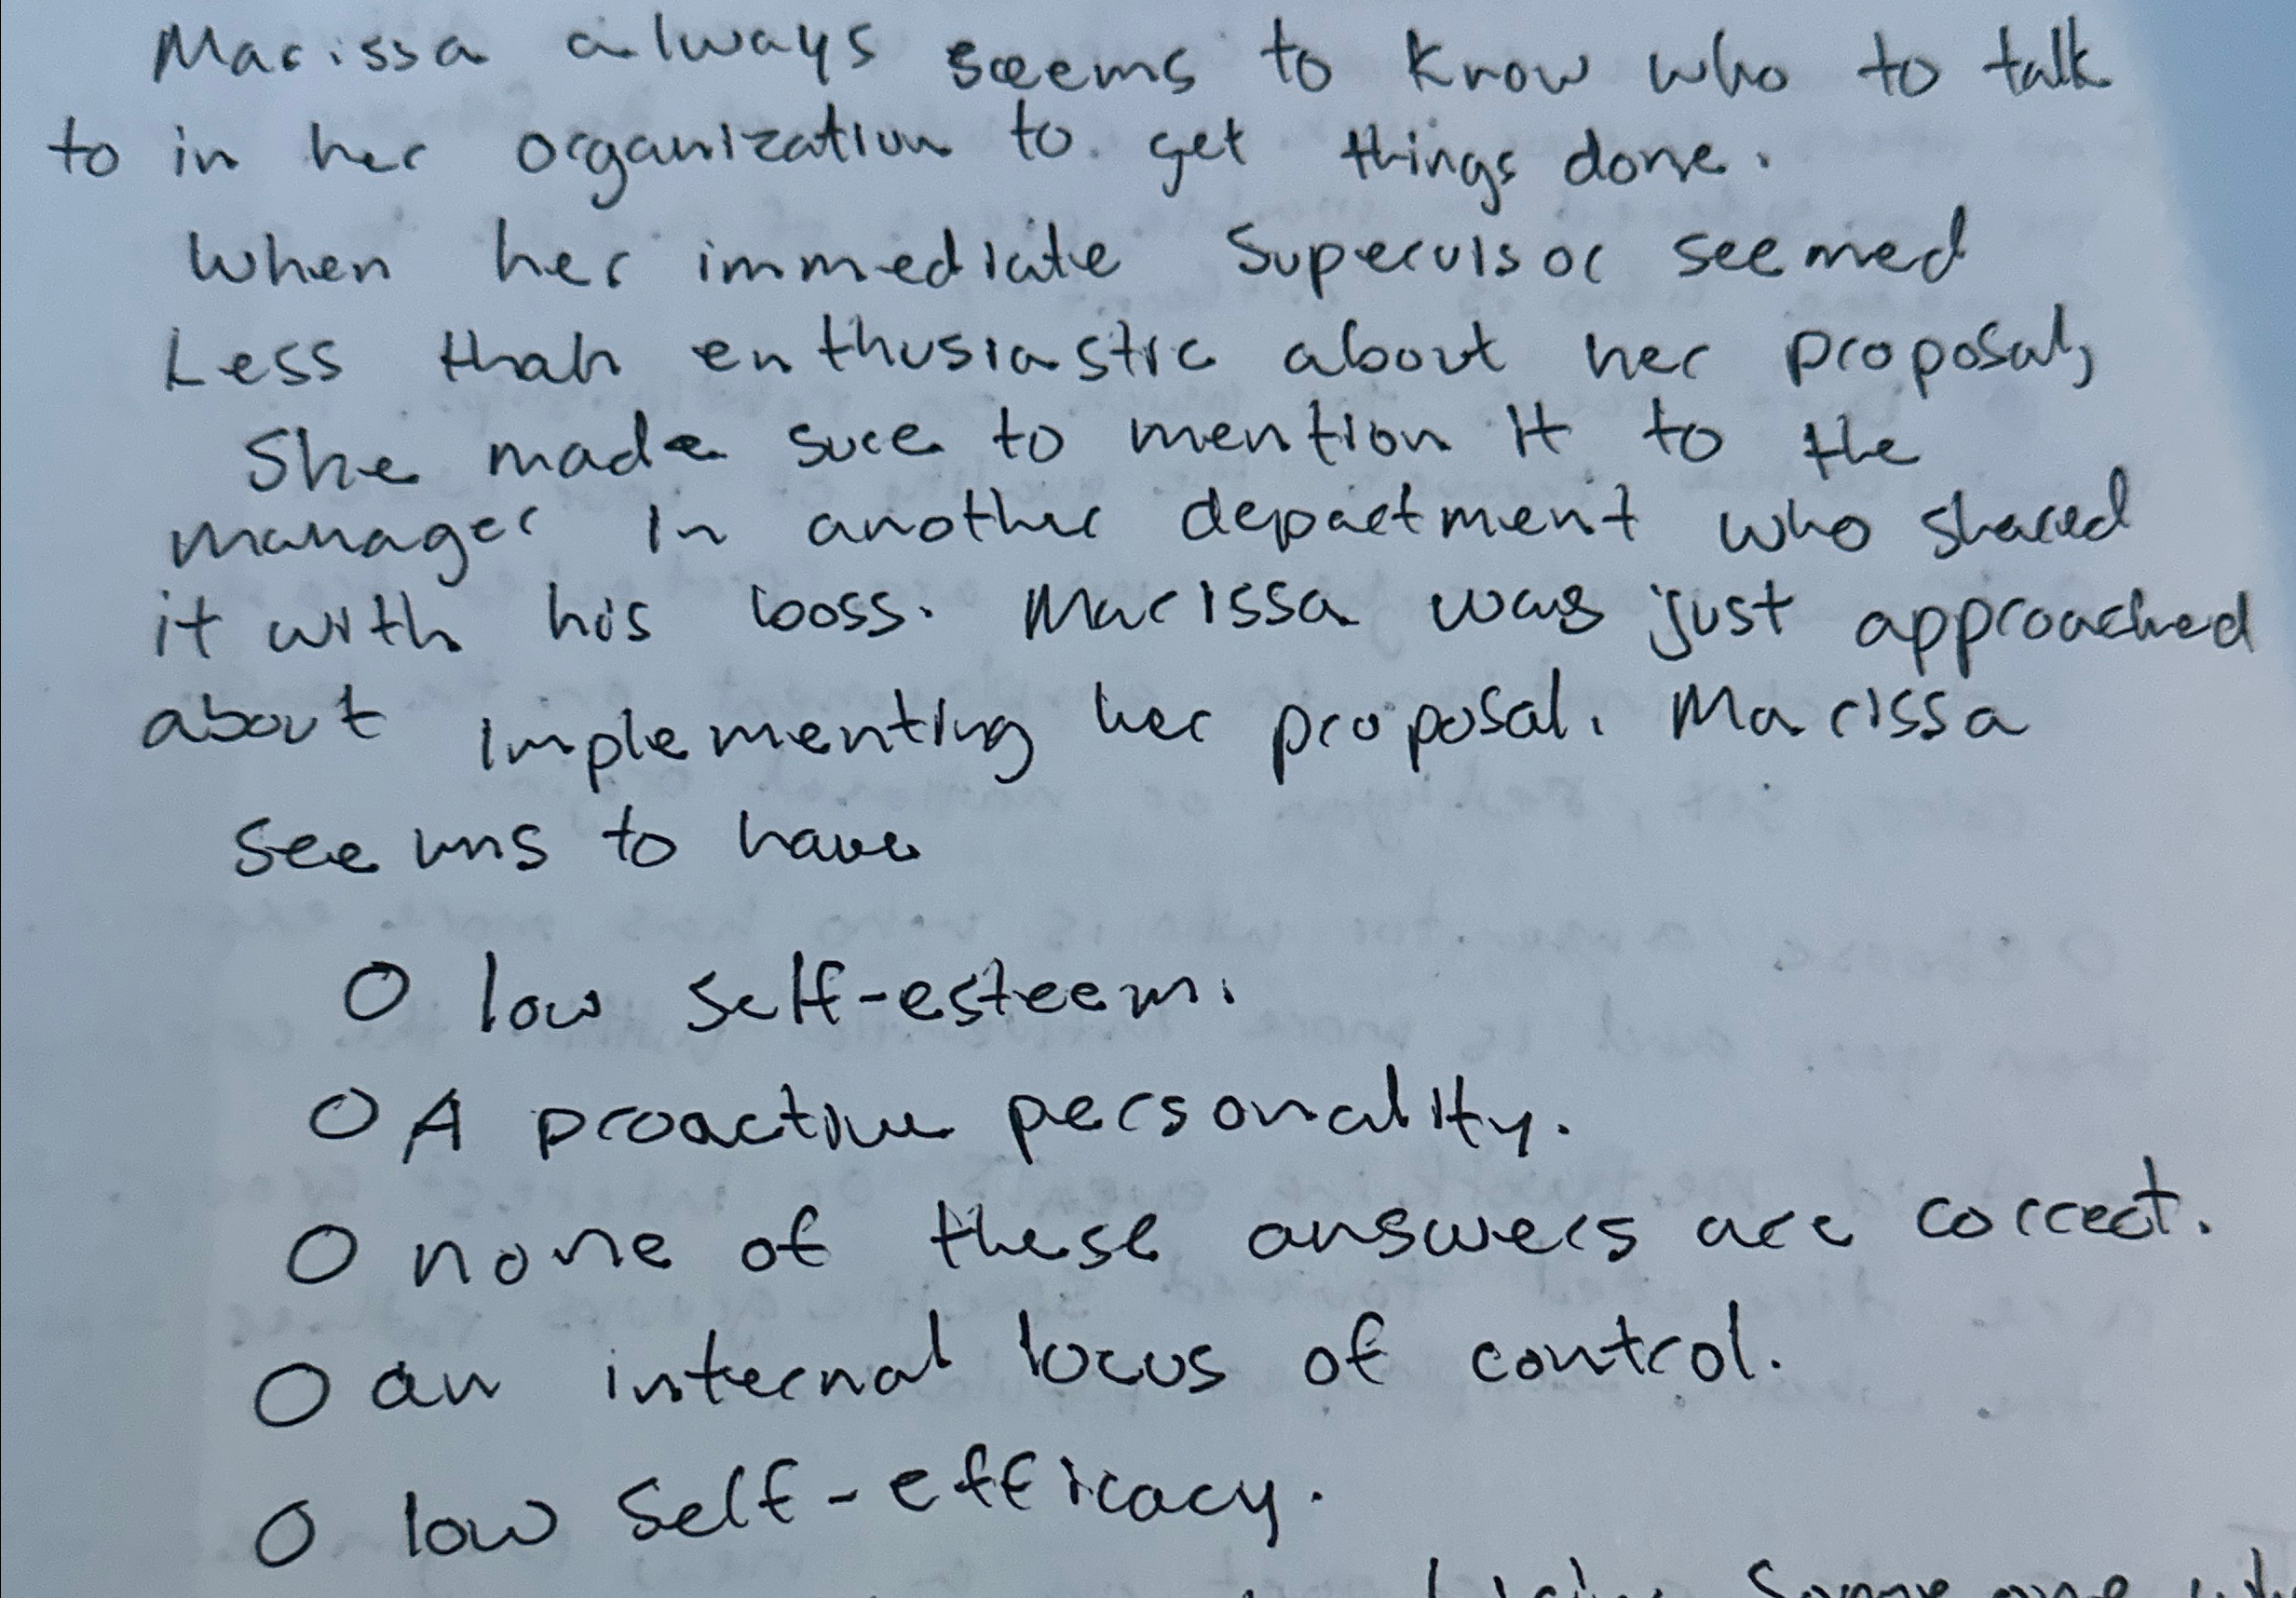 Marissa always seems to know who to talk
to in her organization to get things done.
When her immediate Supervisor seemed
Less than enthusiastic about her proposal,
She made sure to mention it to the
manager in another department who shared
it with his boss. Marissa was just approached
about implementing her proposal. Marissa
seems to have
O low self-esteem.
O A proactive personality.
O none of these answers are correct.
O an internal locus of control.
O low self-efficacy.